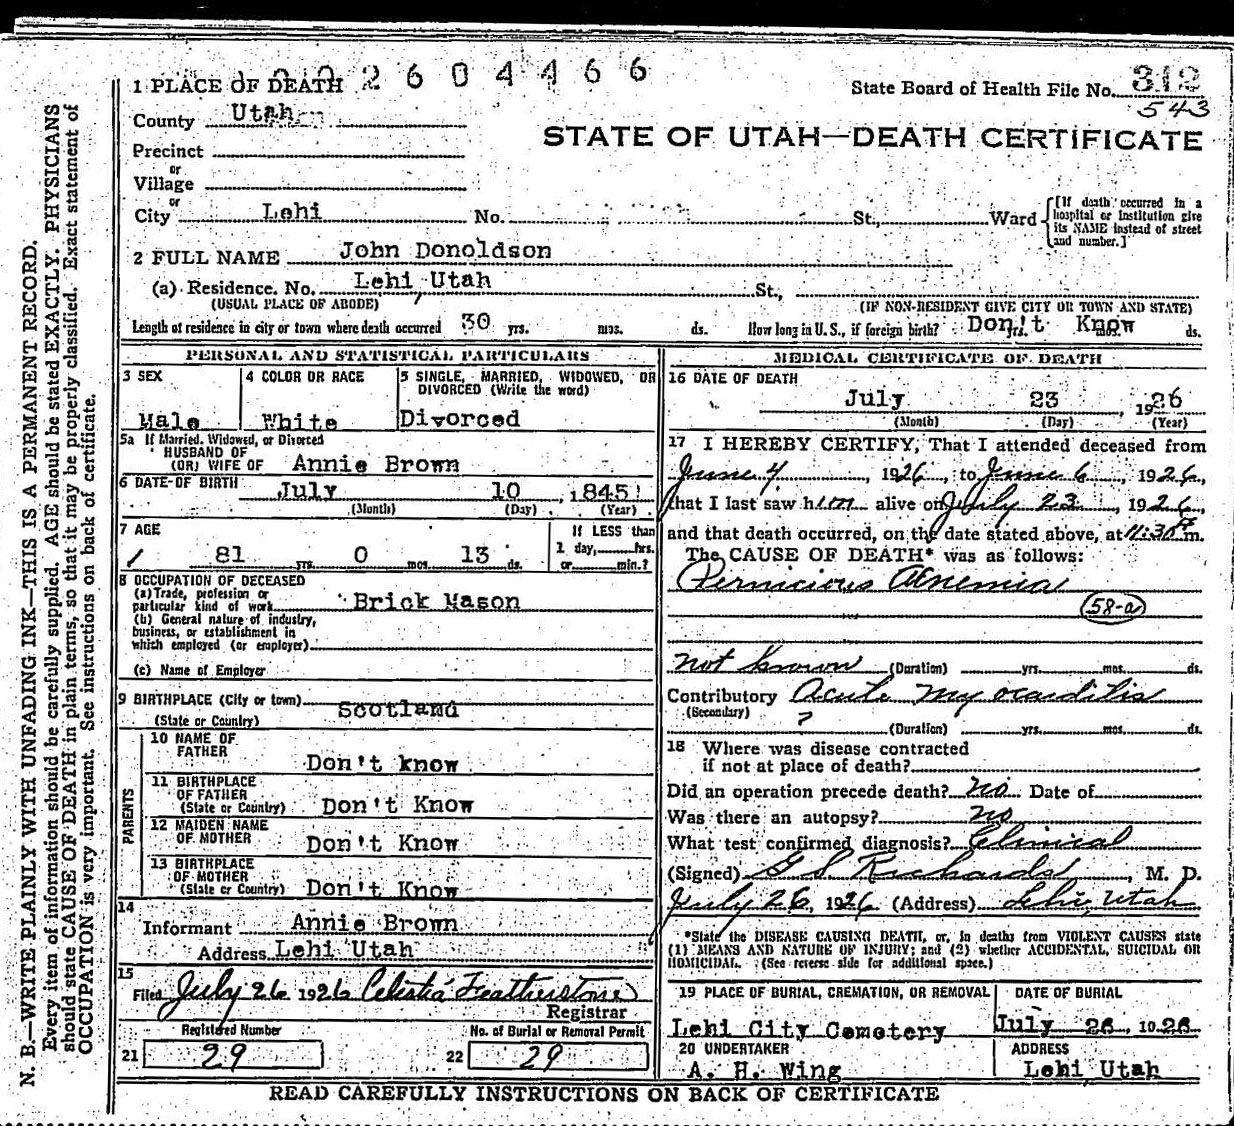 1 PLACE OF DEATH 2 6 0 4 4 6 6
State Board of Health File No. 312
543
County Utah
STATE OF UTAH—DEATH CERTIFICATE
Precinct
or
Village
or
City Lehi No. St., Ward
[If death occurred in a hospital or institution give its NAME instead of street and number.]
2 FULL NAME John Donoldson
(a) Residence. No. Lehi, Utah St.,
(USUAL PLACE OF ABODE) (IF NON-RESIDENT GIVE CITY OR TOWN AND STATE)
Length of residence in city or town where death occurred 30 yrs. mos. ds. How long in U. S., if foreign birth? Don't Know yrs. mos. ds.
PERSONAL AND STATISTICAL PARTICULARS
3 SEX
Male
4 COLOR OR RACE
White
5 SINGLE, MARRIED, WIDOWED, OR
DIVORCED (Write the word)
Divorced
5a If Married, Widowed, or Divorced
HUSBAND OF
(OR) WIFE OF Annie Brown
6 DATE OF BIRTH July 10, 1845
(Month) (Day) (Year)
7 AGE
81 yrs. 0 mos. 13 ds.
If LESS than
1 day, hrs.
or min.?
8 OCCUPATION OF DECEASED
(a) Trade, profession or
particular kind of work Brick Mason
(b) General nature of industry,
business, or establishment in
which employed (or employer)
(c) Name of Employer
9 BIRTHPLACE (City or town)
(State or Country) Scotland
PARENTS
10 NAME OF
FATHER Don't know
11 BIRTHPLACE
OF FATHER
(State or Country) Don't Know
12 MAIDEN NAME
OF MOTHER Don't Know
13 BIRTHPLACE
OF MOTHER
(State or Country) Don't Know
14
Informant Annie Brown
Address Lehi Utah
15
Filed July 26 1926 Celestia Featherstone
Registrar
Registered Number
21 29
No. of Burial or Removal Permit
22 29
MEDICAL CERTIFICATE OF DEATH
16 DATE OF DEATH
July 23, 1926
(Month) (Day) (Year)
17 I HEREBY CERTIFY, That I attended deceased from
June 4, 1926, to June 6, 1926,
that I last saw him alive on July 23, 1926,
and that death occurred, on the date stated above, at 11:30 P m.
The CAUSE OF DEATH* was as follows:
Pernicious Anemia
58-a
not known (Duration) yrs. mos. ds.
Contributory Acute myocarditis
(Secondary)
? (Duration) yrs. mos. ds.
18 Where was disease contracted
if not at place of death?
Did an operation precede death? No Date of
Was there an autopsy? no
What test confirmed diagnosis? Clinical
(Signed) G S Richards, M. D.
July 26, 1926 (Address) Lehi, Utah
*State the DISEASE CAUSING DEATH, or, in deaths from VIOLENT CAUSES state
(1) MEANS AND NATURE OF INJURY; and (2) whether ACCIDENTAL, SUICIDAL OR
HOMICIDAL. (See reverse side for additional space.)
19 PLACE OF BURIAL, CREMATION, OR REMOVAL
Lehi City Cemetery
DATE OF BURIAL
July 26, 1926
20 UNDERTAKER
A. H. Wing
ADDRESS
Lehi Utah
READ CAREFULLY INSTRUCTIONS ON BACK OF CERTIFICATE
N. B.—WRITE PLAINLY WITH UNFADING INK—THIS IS A PERMANENT RECORD.
Every item of information should be carefully supplied. AGE should be stated EXACTLY. PHYSICIANS
should state CAUSE OF DEATH in plain terms, so that it may be properly classified. Exact statement of
OCCUPATION is very important. See instructions on back of certificate.